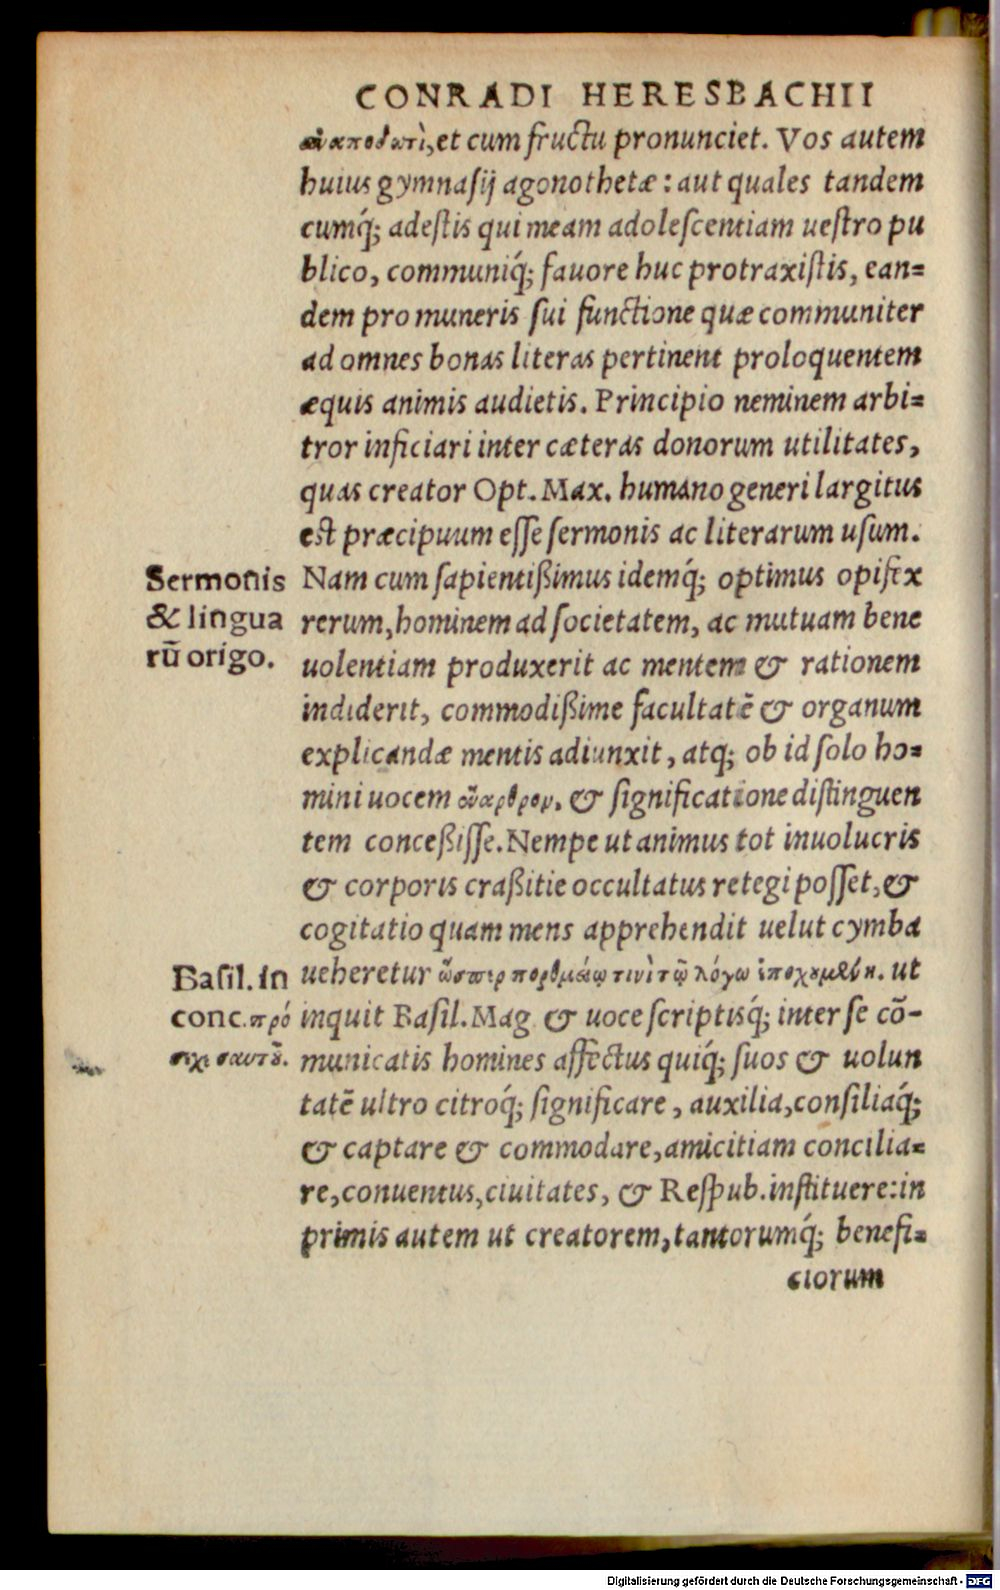 CONRADI HERESBACHII
et cum fructu pronunciet. Vos autem
huius gymnasij agonothetæ: aut quales tandem
cumq́; adestis qui meam adolescentiam uestro pu
blico, communiq́; fauore huc protraxistis, ean=
dem pro muneris sui functione quæ communiter
ad omnes bonas literas pertinent proloquentem
æquis animis audietis. Principio neminem arbi=
tror inficiari inter cæteras donorum utilitates,
quas creator Opt. Max. humano generi largitus
est præcipuum esse sermonis ac literarum usum.
Sermonis
& lingua
rũ origo.
Nam cum sapientißimus idemq́; optimus opifex
rerum, hominem ad societatem, ac mutuam bene
uolentiam produxerit ac mentem & rationem
indiderit, commodißime facultatẽ & organum
explicandæ mentis adiunxit, atq; ob id solo ho=
mini uocem ἔναρθρον, & significatione distinguen
tem conceßisse. Nempe ut animus tot inuolucris
& corporis craßitie occultatus retegi posset, &
cogitatio quam mens apprehendit uelut cymba
Basil. in
conc. πρό
σεχε σαυτῷ.
ueheretur ὥσπερ πορθμείῳ τινὶ τῷ λόγῳ ἐποχουμένη. ut
inquit Basil. Mag & uoce scriptisq́; inter se cõ-
municatis homines affectus quiq́; suos & uolun
tatẽ ultro citroq́; significare, auxilia, consiliaq́;
& captare & commodare, amicitiam concilia=
re, conuentus, ciuitates, & Respub. instituere: in
primis autem ut creatorem, tantorumq́; benefi=
ciorum
Digitalisierung gefördert durch die Deutsche Forschungsgemeinschaft - DFG